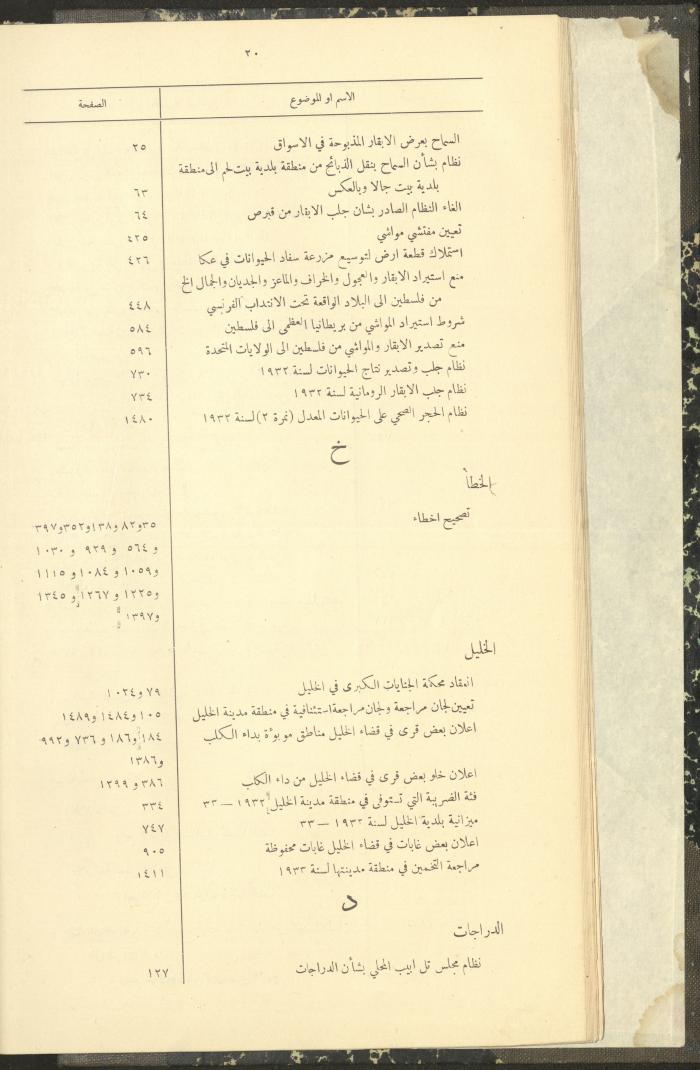 ٢٠
الاسم او الموضوع	الصفحة
السماح بعرض الابقار المذبوحة في الاسواق	٢٥
نظام بشأن السماح بنقل الذبائح من منطقة بلدية بيت لحم الى منطقة
بلدية بيت جالا وبالعكس	٦٣
الغاء النظام الصادر بشان جلب الابقار من قبرص	٦٤
تعيين مفتشي مواشي	٤٢٥
استملاك قطعة ارض لتوسيع مزرعة سفاد الحيوانات في عكا	٤٢٦
منع استيراد الابقار والعجول والخراف والماعز والجديان والجمال الخ
من فلسطين الى البلاد الواقعة تحت الانتداب الفرنسي	٤٤٨
شروط استيراد المواشي من بريطانيا العظمى الى فلسطين	٥٨٤
منع تصدير الابقار والمواشي من فلسطين الى الولايات المتحدة	٥٩٦
نظام جلب وتصدير نتاج الحيوانات لسنة ١٩٣٢	٧٣٠
نظام جلب الابقار الرومانية لسنة ١٩٣٢	٧٣٤
نظام الحجر الصحي على الحيوانات المعدل (نمرة ٢) لسنة ١٩٣٢	١٤٨٠
خ
الخطأ
تصحيح اخطاء	٣٥ و٨٢ و١٣٨ و٣٥٢ و٣٩٧
و ٥٦٤ و ٩٢٩ و ١٠٣٠
و١٠٥٩ و ١٠٨٤ و ١١١٥
و١٢٢٥ و ١٢٦٧ و ١٣٤٥
و١٣٩٧
الخليل
انعقاد محكمة الجنايات الكبرى في الخليل	٧٩ و١٠٢٤
تعيين لجان مراجعة ولجان مراجعة استئنافية في منطقة مدينة الخليل	١٠٥ و١٤٨٤ و١٤٨٩
اعلان بعض قرى في قضاء الخليل مناطق موبوءة بداء الكلب	١٨٤ و١٨٦ و ٧٣٦ و٩٩٢
و١٣٨٦
اعلان خلو بعض قرى في قضاء الخليل من داء الكلب	٣٨٦ و ١٢٩٩
فئة الضريبة التي تستوفى في منطقة مدينة الخليل ١٩٣٢ — ٣٣	٣٣٤
ميزانية بلدية الخليل لسنة ١٩٣٢ — ٣٣	٧٤٧
اعلان بعض غابات في قضاء الخليل غابات محفوظة	٩٠٥
مراجعة التخمين في منطقة مدينتها لسنة ١٩٣٣	١٤١١
د
الدراجات
نظام مجلس تل ابيب المحلي بشأن الدراجات	١٢٧